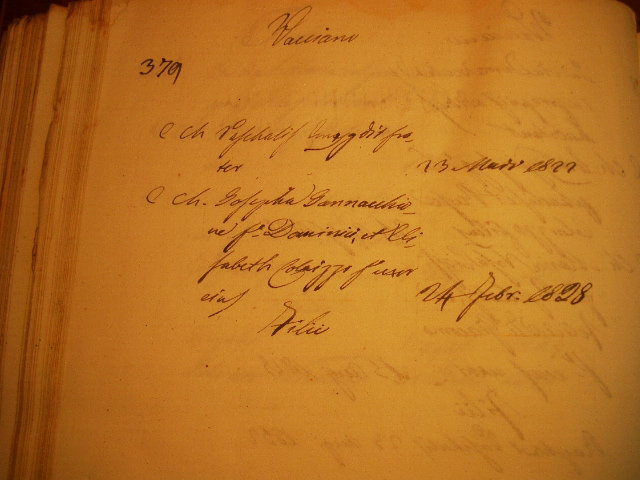 Vacciano
379
C Ch Paschalis fra-
ter 23 Maii 1822
C Ch. Josepha Iannacchio-
ne f.a Dominici, et Eli-
sabeth uxor
eius 24 Febr. 1828
Filii